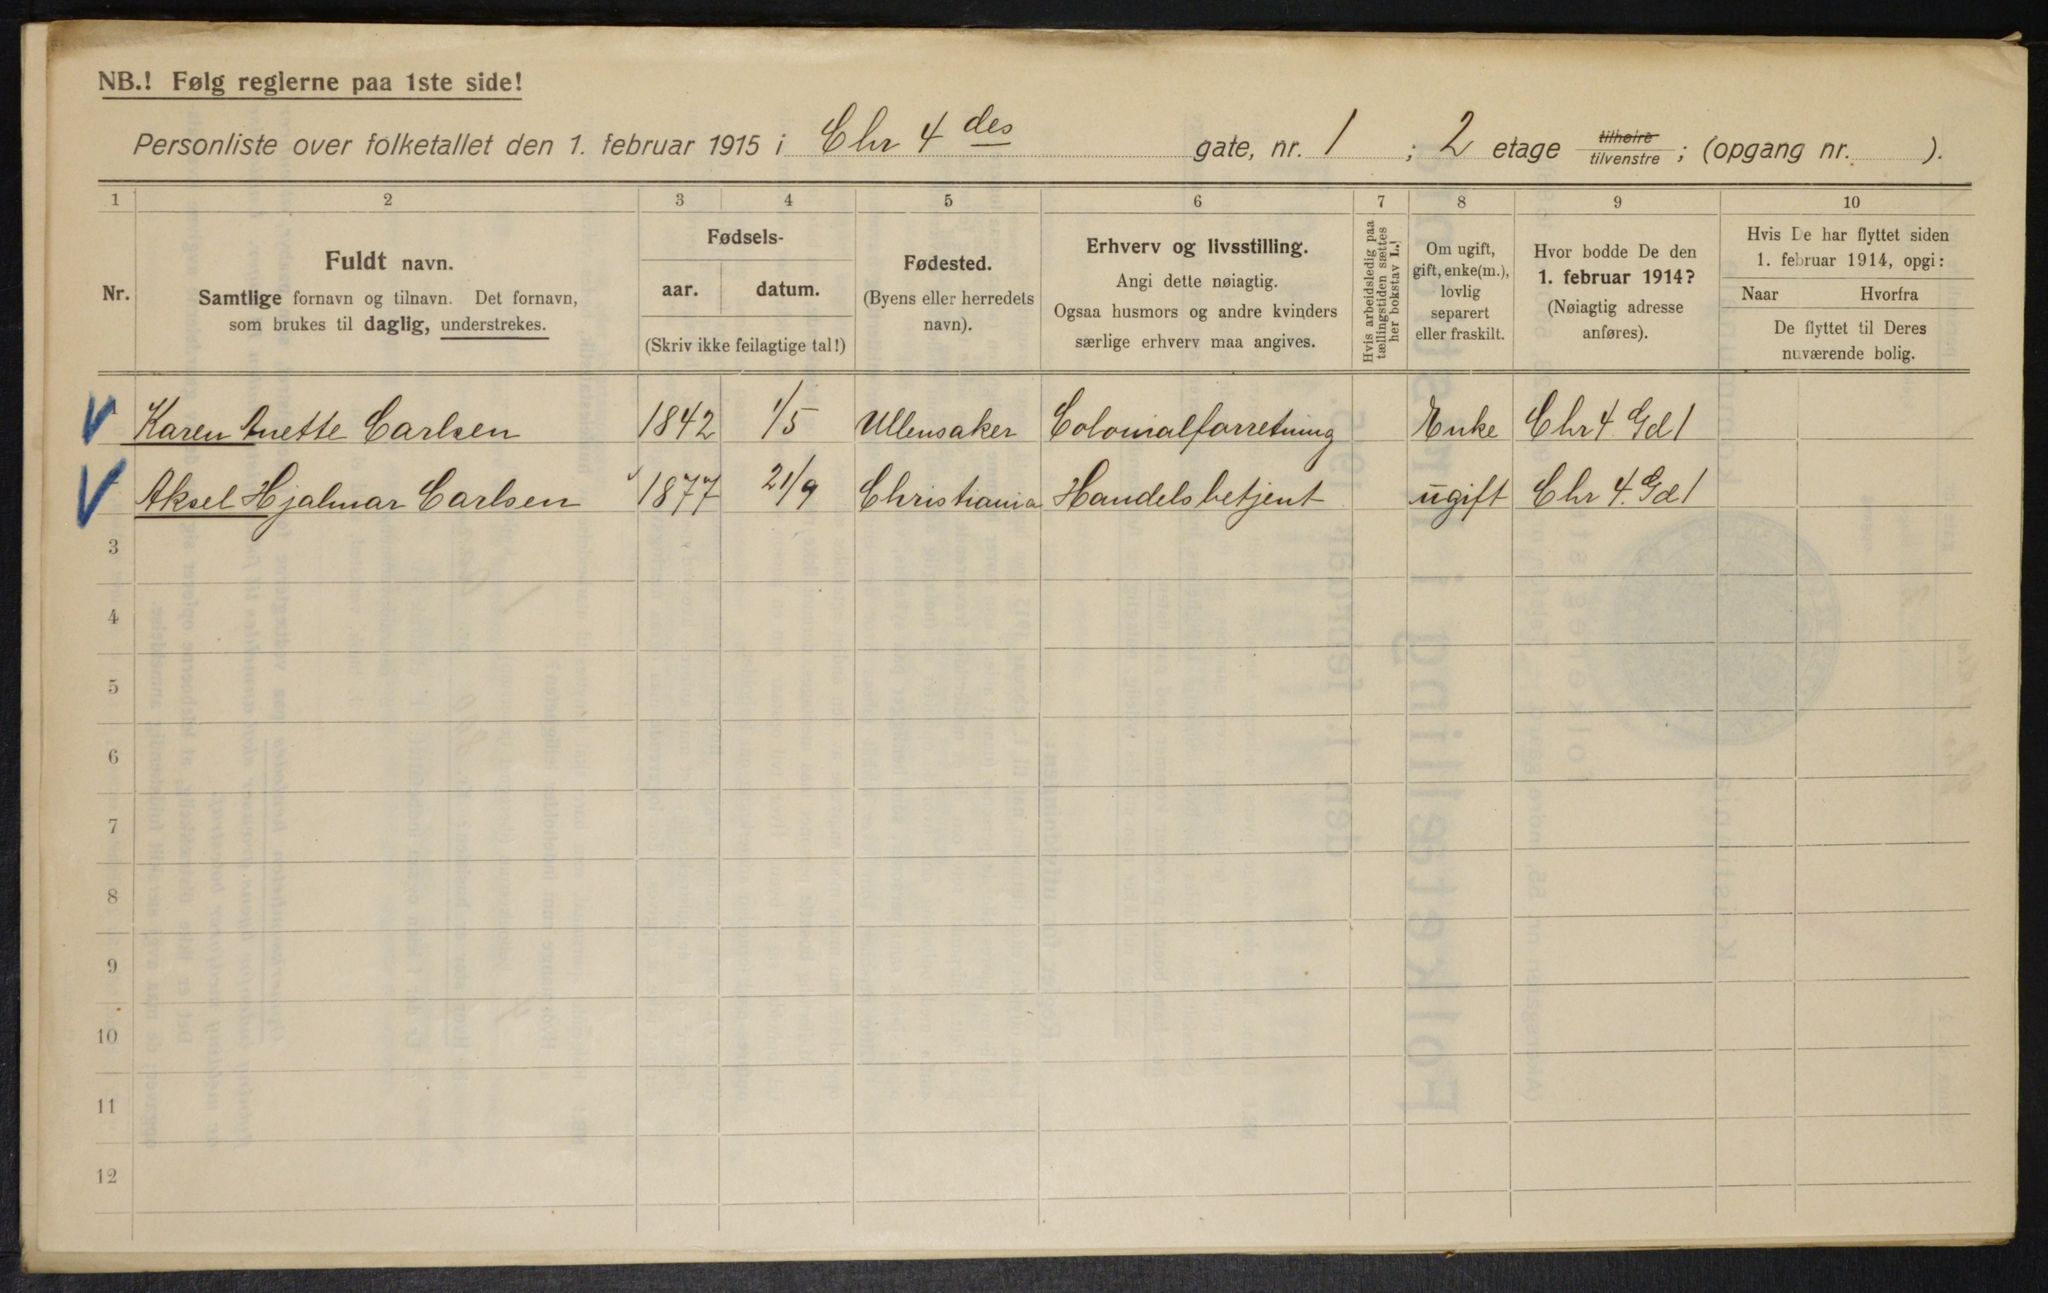 NB.! Følg reglerne paa 1ste side!
Personliste over folketallet den 1. februar 1915 i Chr 4 des gate, nr. 1 ; 2 etage tilhøire tilvenstre ; (opgang nr. ).
1 2 3 4 5 6 7 8 9 10
Nr.
Fuldt navn.
Samtlige fornavn og tilnavn. Det fornavn,
som brukes til daglig, understrekes.
Fødsels-
aar. datum.
(Skriv ikke feilagtige tal!)
Fødested.
(Byens eller herredets
navn).
Erhverv og livsstilling.
Angi dette nøiagtig.
Ogsaa husmors og andre kvinders
særlige erhverv maa angives.
Hvis arbeidsledig paa
tællingstiden sættes
her bokstav L.!
Om ugift,
gift, enke(m.),
lovlig
separert
eller fraskilt.
Hvor bodde De den
1. februar 1914?
(Nøiagtig adresse
anføres).
Hvis De har flyttet siden
1. februar 1914, opgi:
Naar Hvorfra
De flyttet til Deres
nuværende bolig.
Karen Anette Carlsen 1842 1/5 Ullensaker Colonialforretning Enke Chr 4. Gd 1
Aksel Hjalmar Carlsen 1877 21/9 Christiania Handelsbetjent ugift Chr 4. Gd 1
3
4
5
6
7
8
9
10
11
12